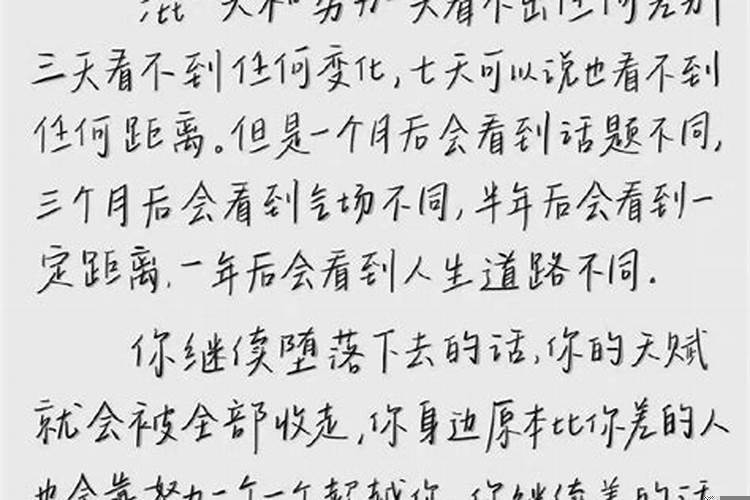 混一天和努力一天看不出任何差别
三天看不到任何变化,七天可以说也看不到
任何距离。但是一个月后会看到话题不同,
三个月后会看到气场不同,半年后会看到一
定距离,一年后会看到人生道路不同.
你继续堕落下去的话,你的天赋
就会被全部收走,你身边原本比你差的人
也会靠努力一个一个超越你,你继续差的话